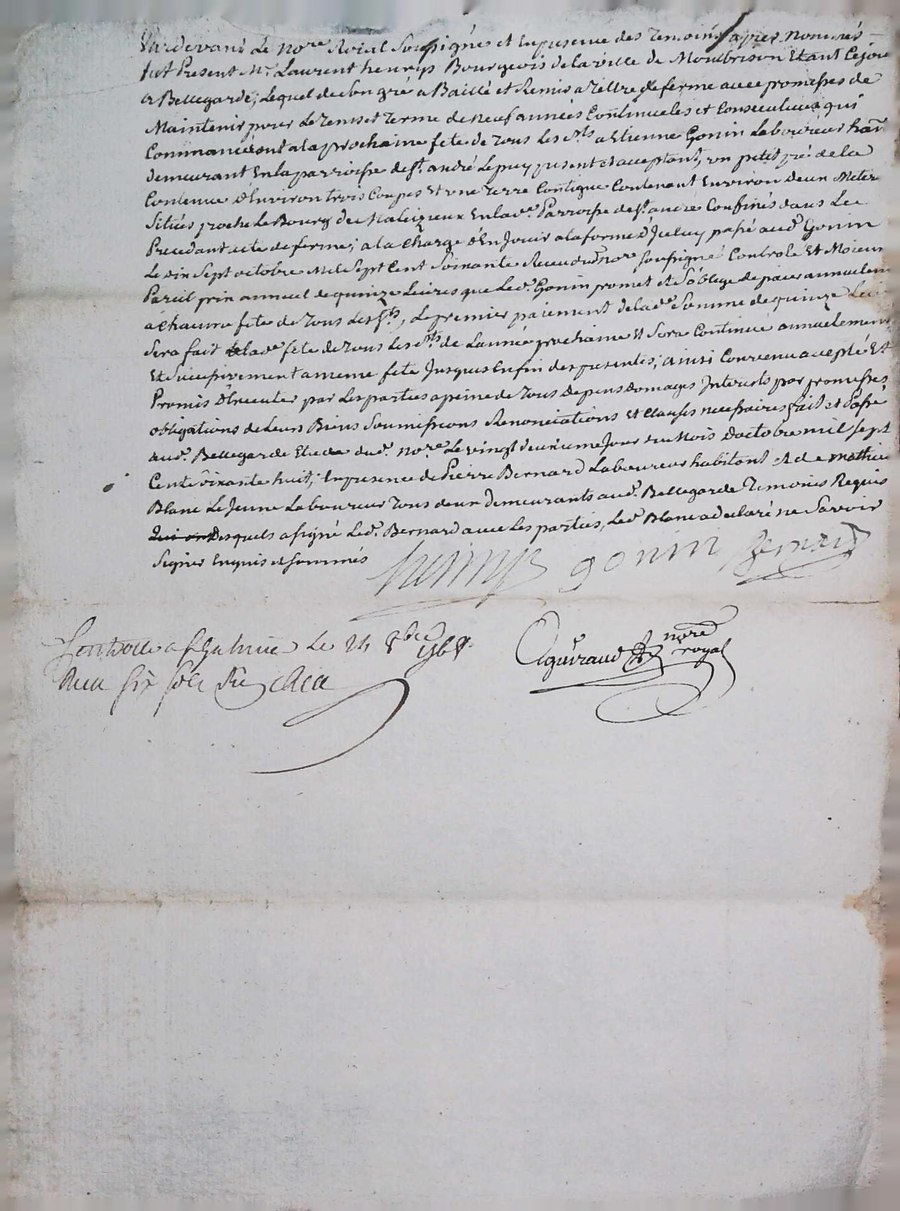 Pardevant Le nore Roial Soussignés et En presence des Temoins apres Nommés
fut Present Mr Laurent henrÿs Bourgeois de la ville de Montbrison Etant Ce jour
a Bellegarde, Lequel de son gré a Baillé et Remis a Tiltre de ferme avec promesses de
Maintenir pour Le Tems et Terme de neuf années Continuelles et Consecutives qui
Commanceront a la prochaine fete de Tous Les Sts a Etienne Gonin Laboureur
demeurant En la parroisse de St andré Le puy present et acceptant, un petit pré de la
Contenue D'Environ trois Coupes Et une Terre Contigue Contenant Environ deux Meter
Situés proche Le Bourg de Maleizieux En lade Parroisse de St andré Confinés dans Le
Precedant acte de ferme, a la Charge d'En Jouir a la forme d'Jceluy passé aud. Gonin
Le dix Sept octobre Mil Sept Cent Soixante Receu dud. nore soussigné Controlé Et Moienn
Pareil prix annuel de quinze Livres que Led. Gonin promet et S'oblige de paier annuelem
a Chaune fete de Tous Les Sts, Le premier paiement de lade Somme de quinze
Sera fait a lade fete de Tous Les Sts de L'année prochaine Et Sera Continué annuelement
Et Successivement a meme fete Jusques En fin des presentes; ainsi Convenu accepté Et
Promis D'Executer par Les parties a peine de Tous Depens Domages Interests par promesses
obligations de Leurs Biens Soumissions Renonciations Et Clauses necessaires fait et Passé
aud. Bellegarde Etude dud. nore Le vingt deuxieme Jour du Mois d'octobre mil sept
Cent Soixante huit, En presence de Pierre Bernard Laboureur habitant et de mathieu
Blanc Le Jeune Laboureur Tous deux demeurants aud. Bellegarde Temoins Requis
Lesquels a signé Led. Bernard avec Les parties, Led. Blanc a declaré ne Savoir
Signer Enquis et sommés
henrys gonin Bernard
Controlé a St Galmier Le 24 8bre 1768
Reçu six sols six
Aguiraud nore royal